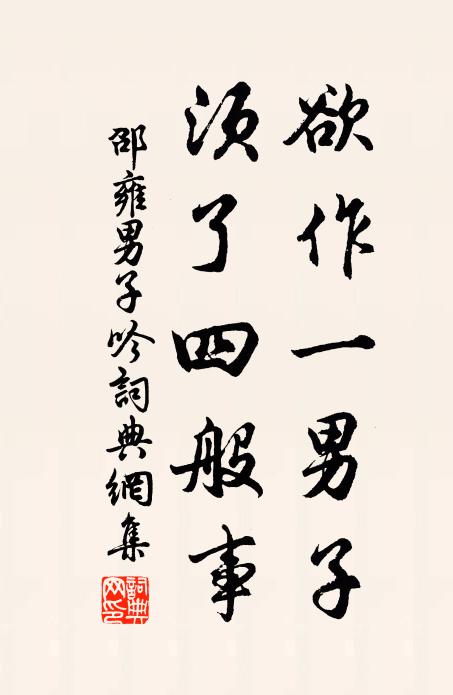 欲作一男子
須了四般事
邵雍男子吟詞典網集
詞典
网印